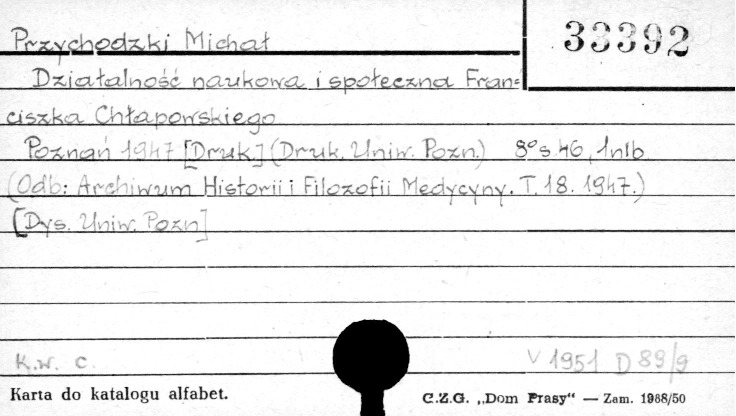 Przychodzki Michał
33392
Działalność naukowa i społeczna Fran=
ciszka Chłapowskiego
Poznań 1947 [Druk.] (Druk. Uniw. Pozn.) 8° s. 46, 1 nlb
(Odb: Archiwum Historii i Filozofii Medycyny. T. 18. 1947.)
[Dys. Uniw. Pozn]
K.w. c.
V 1951 D 89/9
Karta do katalogu alfabet.
C.Z.G. „Dom Prasy“ — Zam. 1988/50